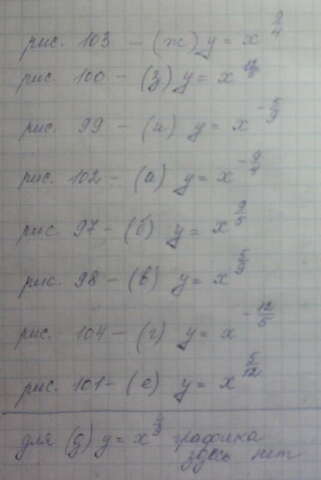 рис. 103 – (ж) y = x^9/4
рис. 100 – (з) y = x
рис. 99 – (и) y = x^-5/9
рис. 102 – (а) y = x^-9/4
рис. 97 – (б) y = x^9/5
рис. 98 – (в) y = x^5/9
рис. 104 – (г) y = x^-12/5
рис. 101 – (е) y = x^5/12
для (д) y = x графика
здесь нет